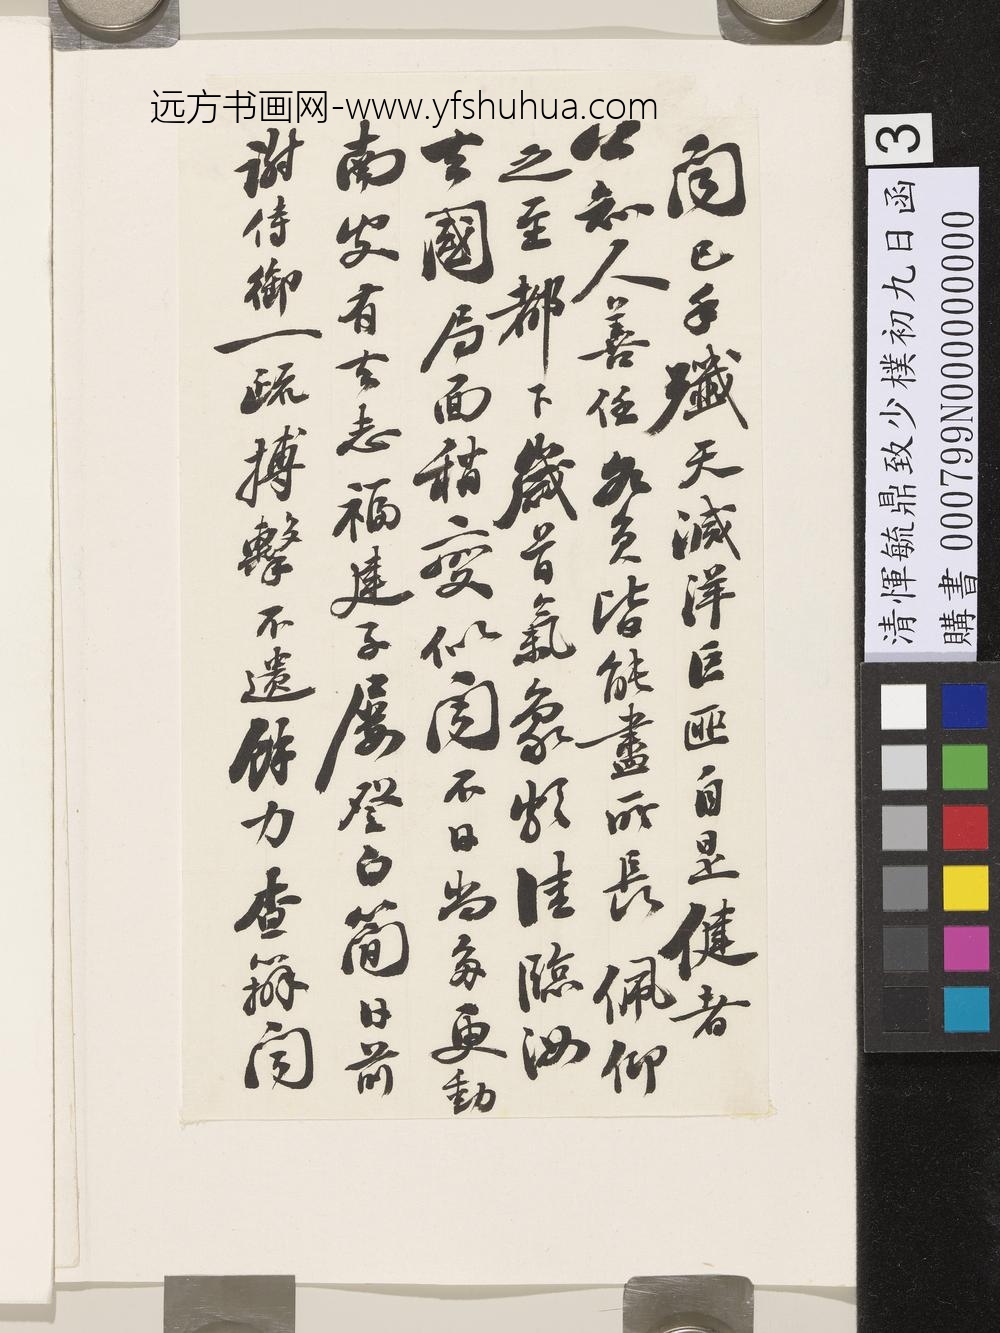 远方书画网-www.yfshuhua.com
聞已手殲天滅洋巨匪自是健者
公知人善任各員皆能盡所長佩仰
之至都下歲首氣象頗佳臨汝
去國局面稍變似聞不日尚多更動
南皮有去志福建子屢登白簡日前
謝侍御一疏搏擊不遺餘力查辦聞
3
清惲毓鼎致少樸初九日函
購書 000799N000000000